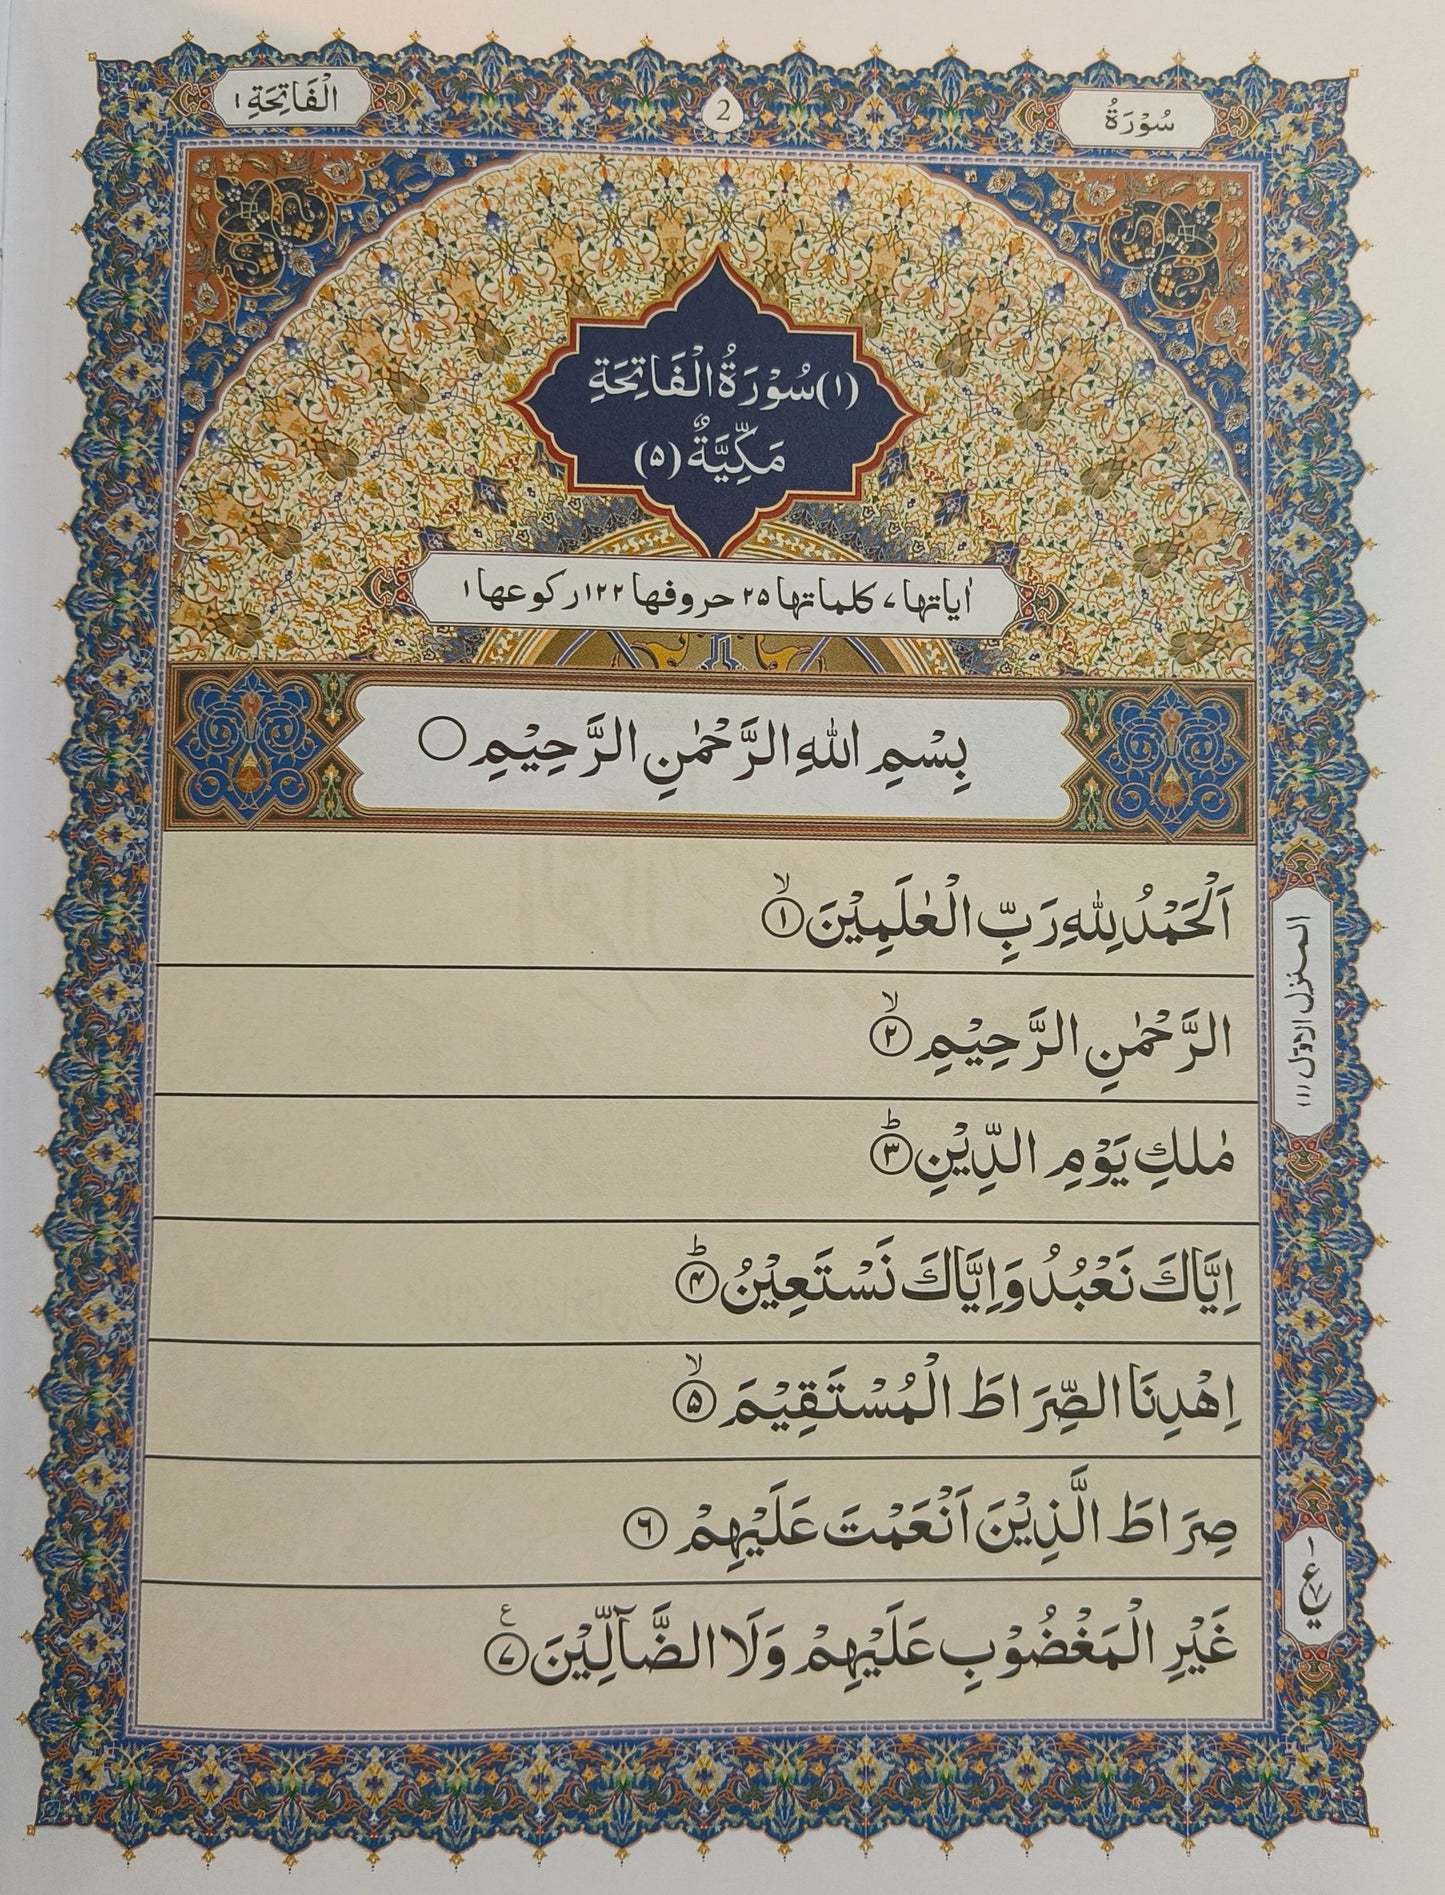 سُوْرَةُ
2
الْفَاتِحَةِ ۱
(۱) سُوْرَةُ الْفَاتِحَةِ
مَكِّيَّةٌ (۵)
اٰیاتہا ۷ کلماتہا ۲۵ حروفہا ۱۲۲ رکوعہا ۱
بِسْمِ اللّٰهِ الرَّحْمٰنِ الرَّحِيْمِ ○
اَلْحَمْدُ لِلّٰهِ رَبِّ الْعٰلَمِيْنَ ۙ﴿۱﴾
الرَّحْمٰنِ الرَّحِيْمِ ۙ﴿۲﴾
مٰلِكِ يَوْمِ الدِّيْنِ ؕ﴿۳﴾
اِيَّاكَ نَعْبُدُ وَاِيَّاكَ نَسْتَعِيْنُ ؕ﴿۴﴾
اِهْدِنَا الصِّرَاطَ الْمُسْتَقِيْمَ ۙ﴿۵﴾
صِرَاطَ الَّذِيْنَ اَنْعَمْتَ عَلَيْهِمْ ﴿۶﴾
غَيْرِ الْمَغْضُوْبِ عَلَيْهِمْ وَلَا الضَّآلِّيْنَ ﴿۷﴾ ع
المنزل الاوّل (۱)
۱
ع
۷